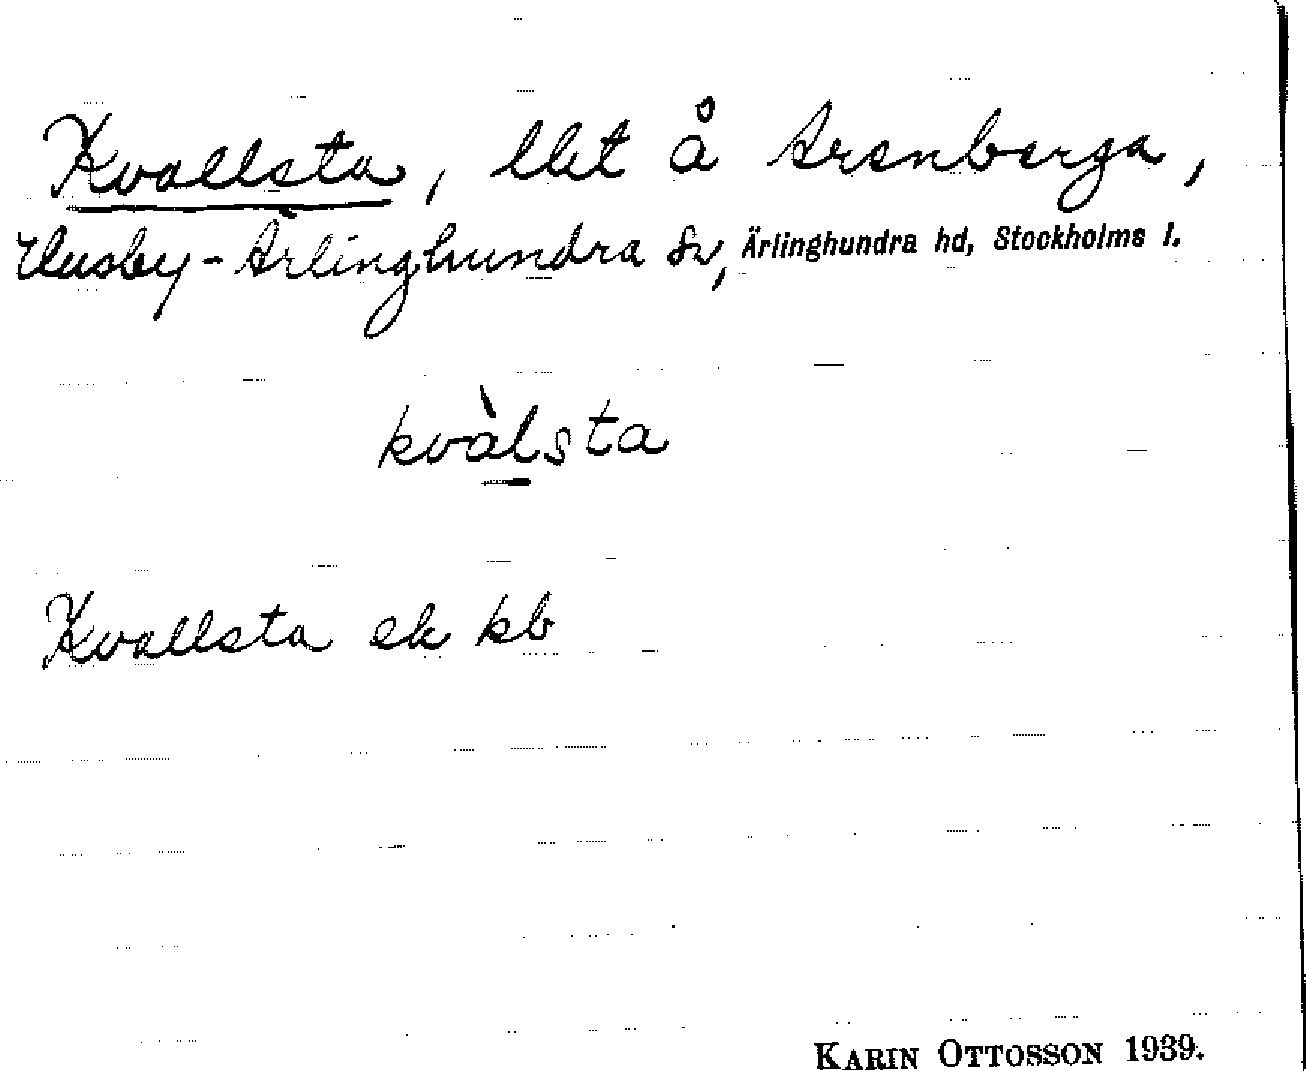 Kvallsta, llet å Arenberga,
Husby-Ärlinghundra sn, Ärlinghundra hd, Stockholms l.
kvàlsta
Kvallsta ek kb
KARIN OTTOSSON 1939.